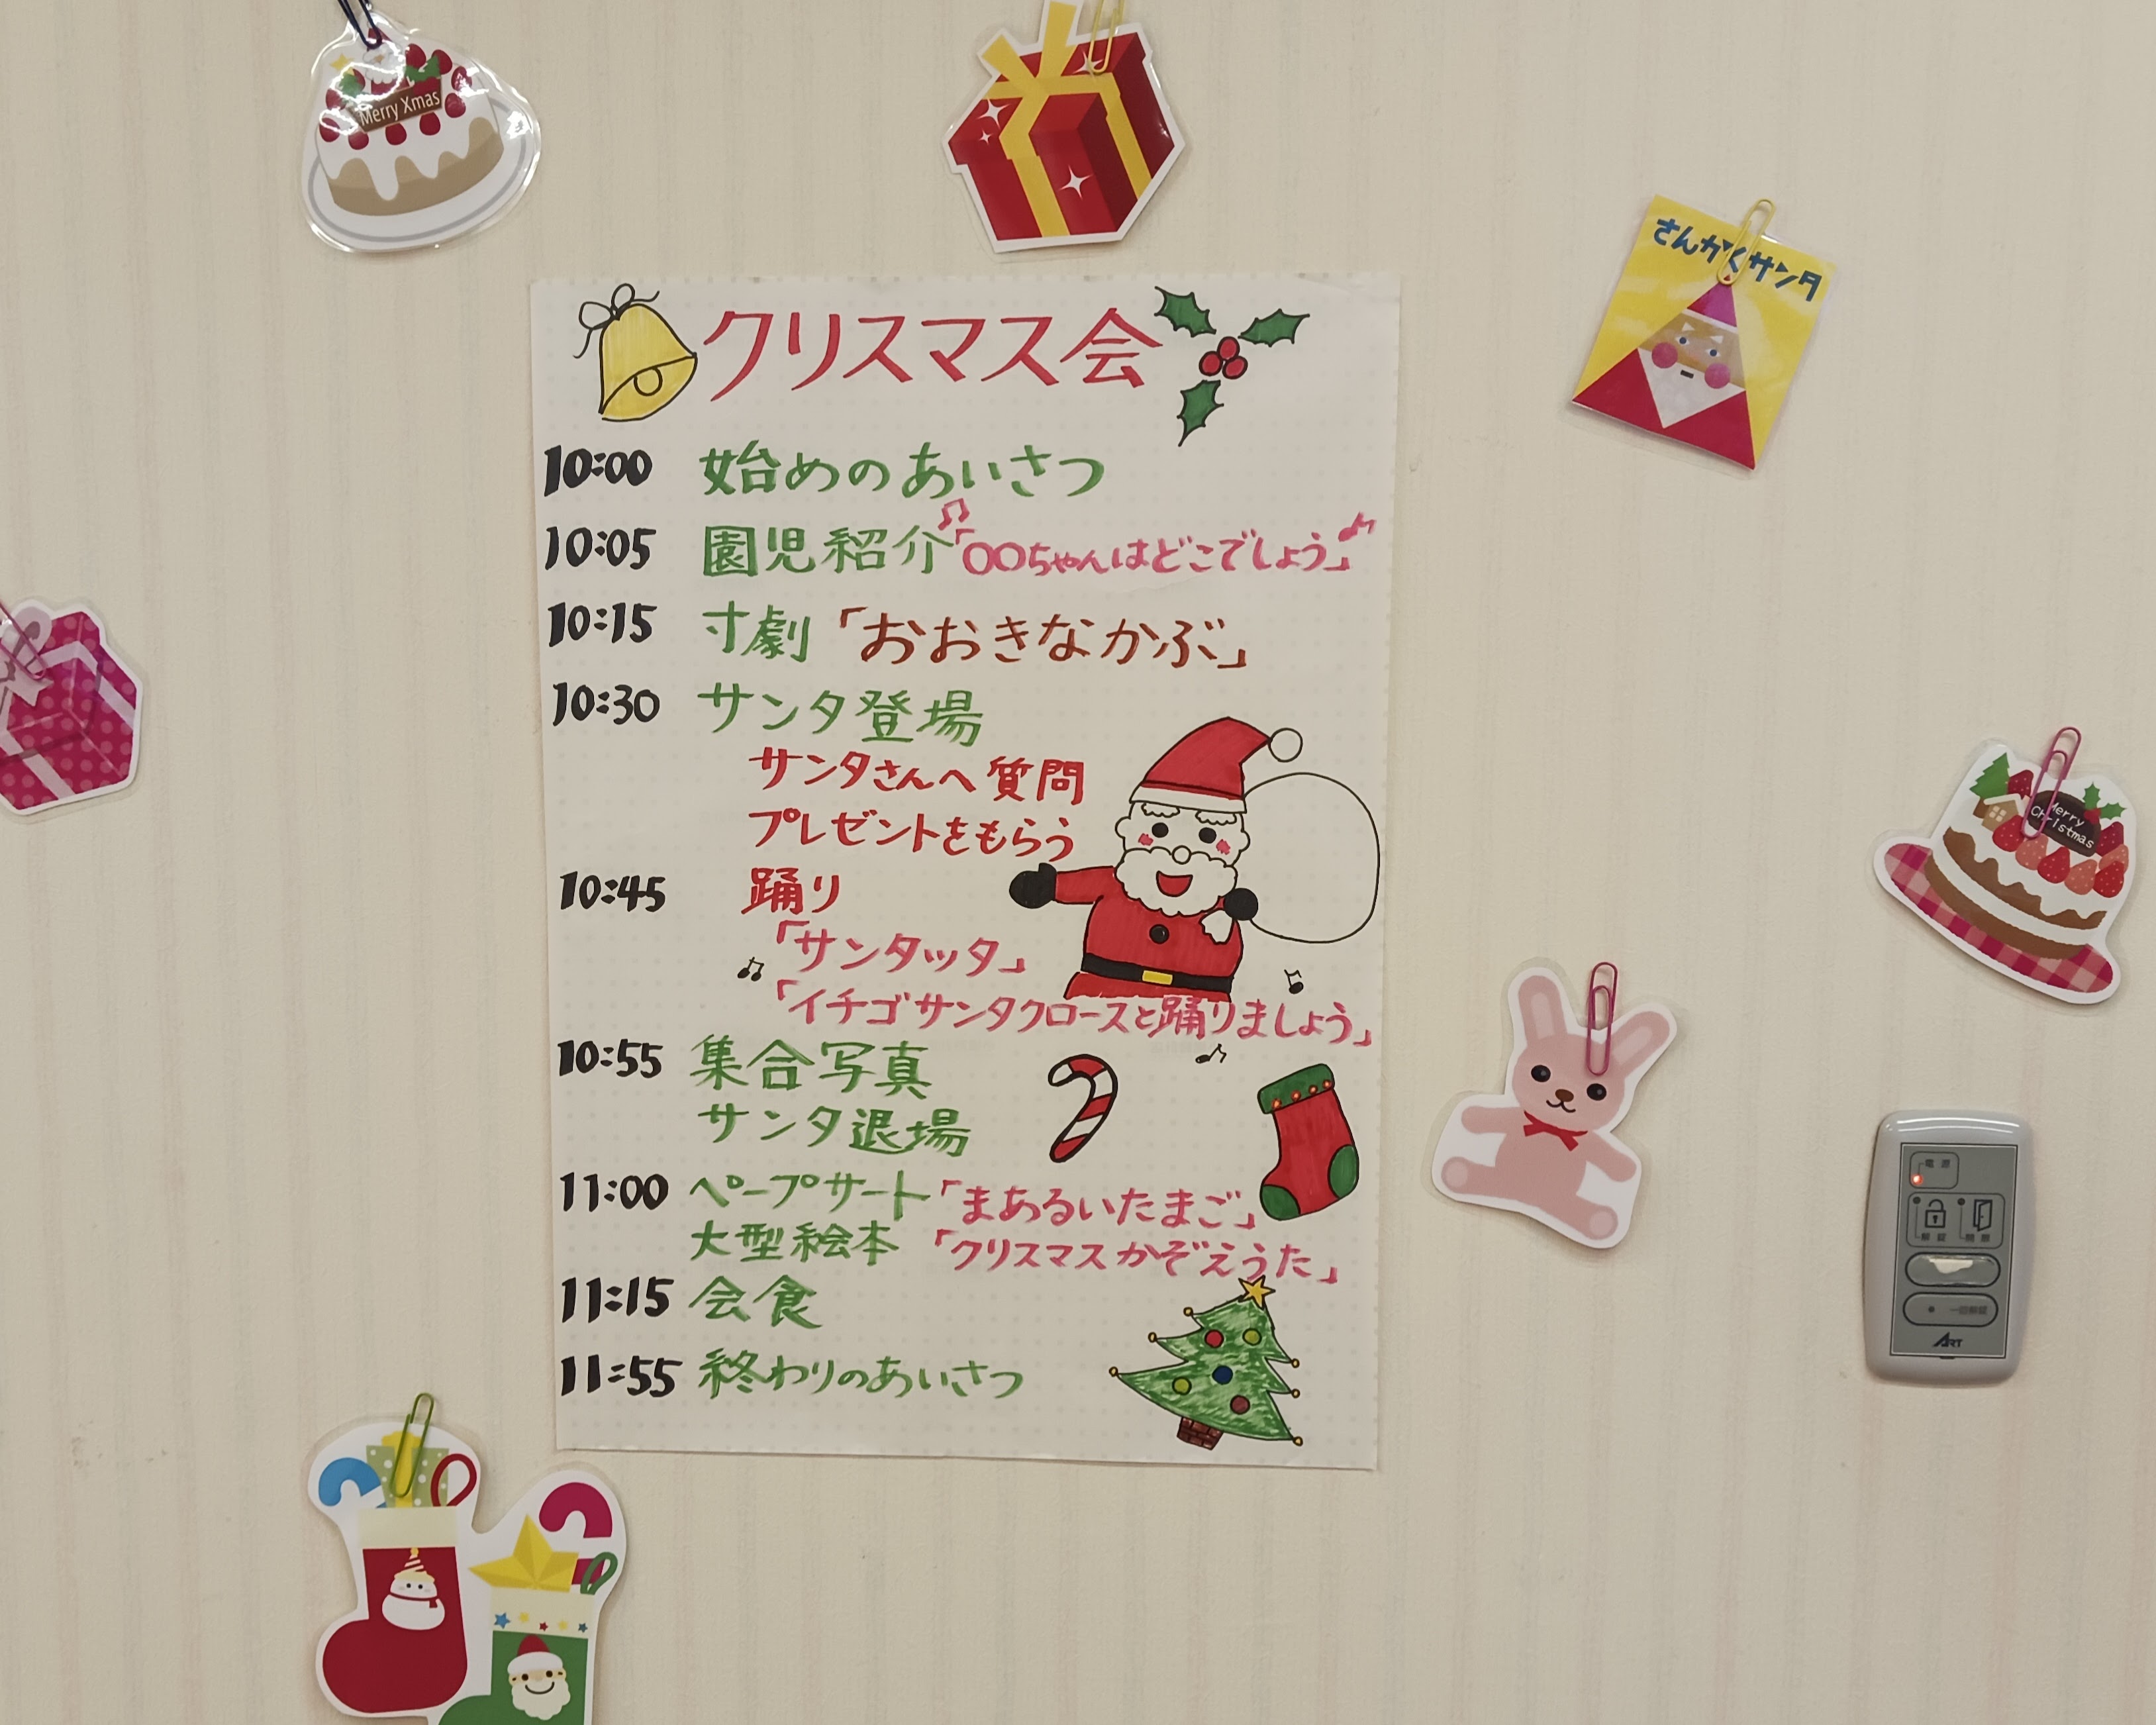 Merry Xmas
さんかくサンタ
クリスマス会
10:00 始めのあいさつ
10:05 園児紹介「〇〇ちゃんはどこでしょう」
10:15 寸劇「おおきなかぶ」
10:30 サンタ登場
サンタさんへ質問
プレゼントをもらう
10:45 踊り
「サンタッタ」
「イチゴサンタクロースと踊りましょう」
10:55 集合写真
サンタ退場
11:00 ペープサート「まあるいたまご」
大型絵本「クリスマスかぞえうた」
11:15 会食
11:55 終わりのあいさつ
Merry
Christmas
電源
解錠
一回解錠
ART